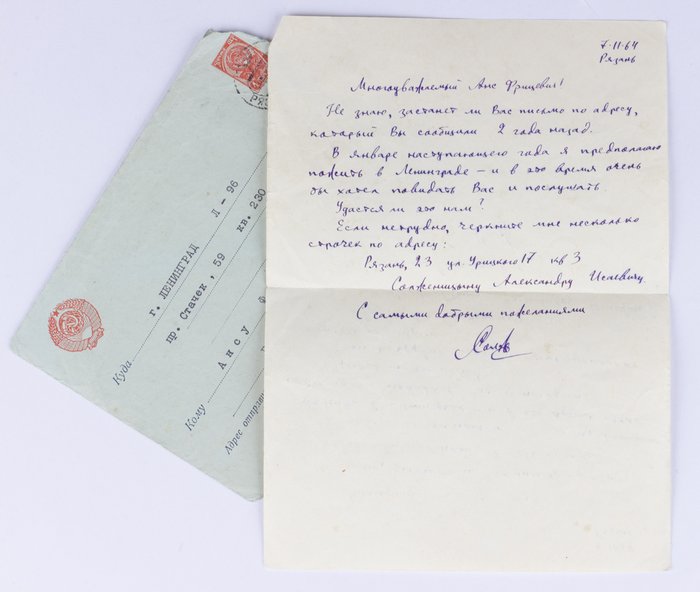 7-11-64
Рязань
Многоуважаемый Анс Фрицевич!
Не знаю, застанет ли Вас письмо по адресу,
который Вы сообщили 2 года назад.
В январе наступающего года я предполагаю
пожить в Ленинграде – и в это время очень
бы хотел повидать Вас и послушать.
Удастся ли это нам?
Если нетрудно, черкните мне несколько
строчек по адресу:
Рязань, 23 ул. Урицкого 17 кв 3
Солженицыну Александру Исаевичу.
С самыми добрыми пожеланиями
Куда г. ЛЕНИНГРАД Л – 96
пр. Стачек, 59 кв. 230
Кому Ансу
Адрес отправи